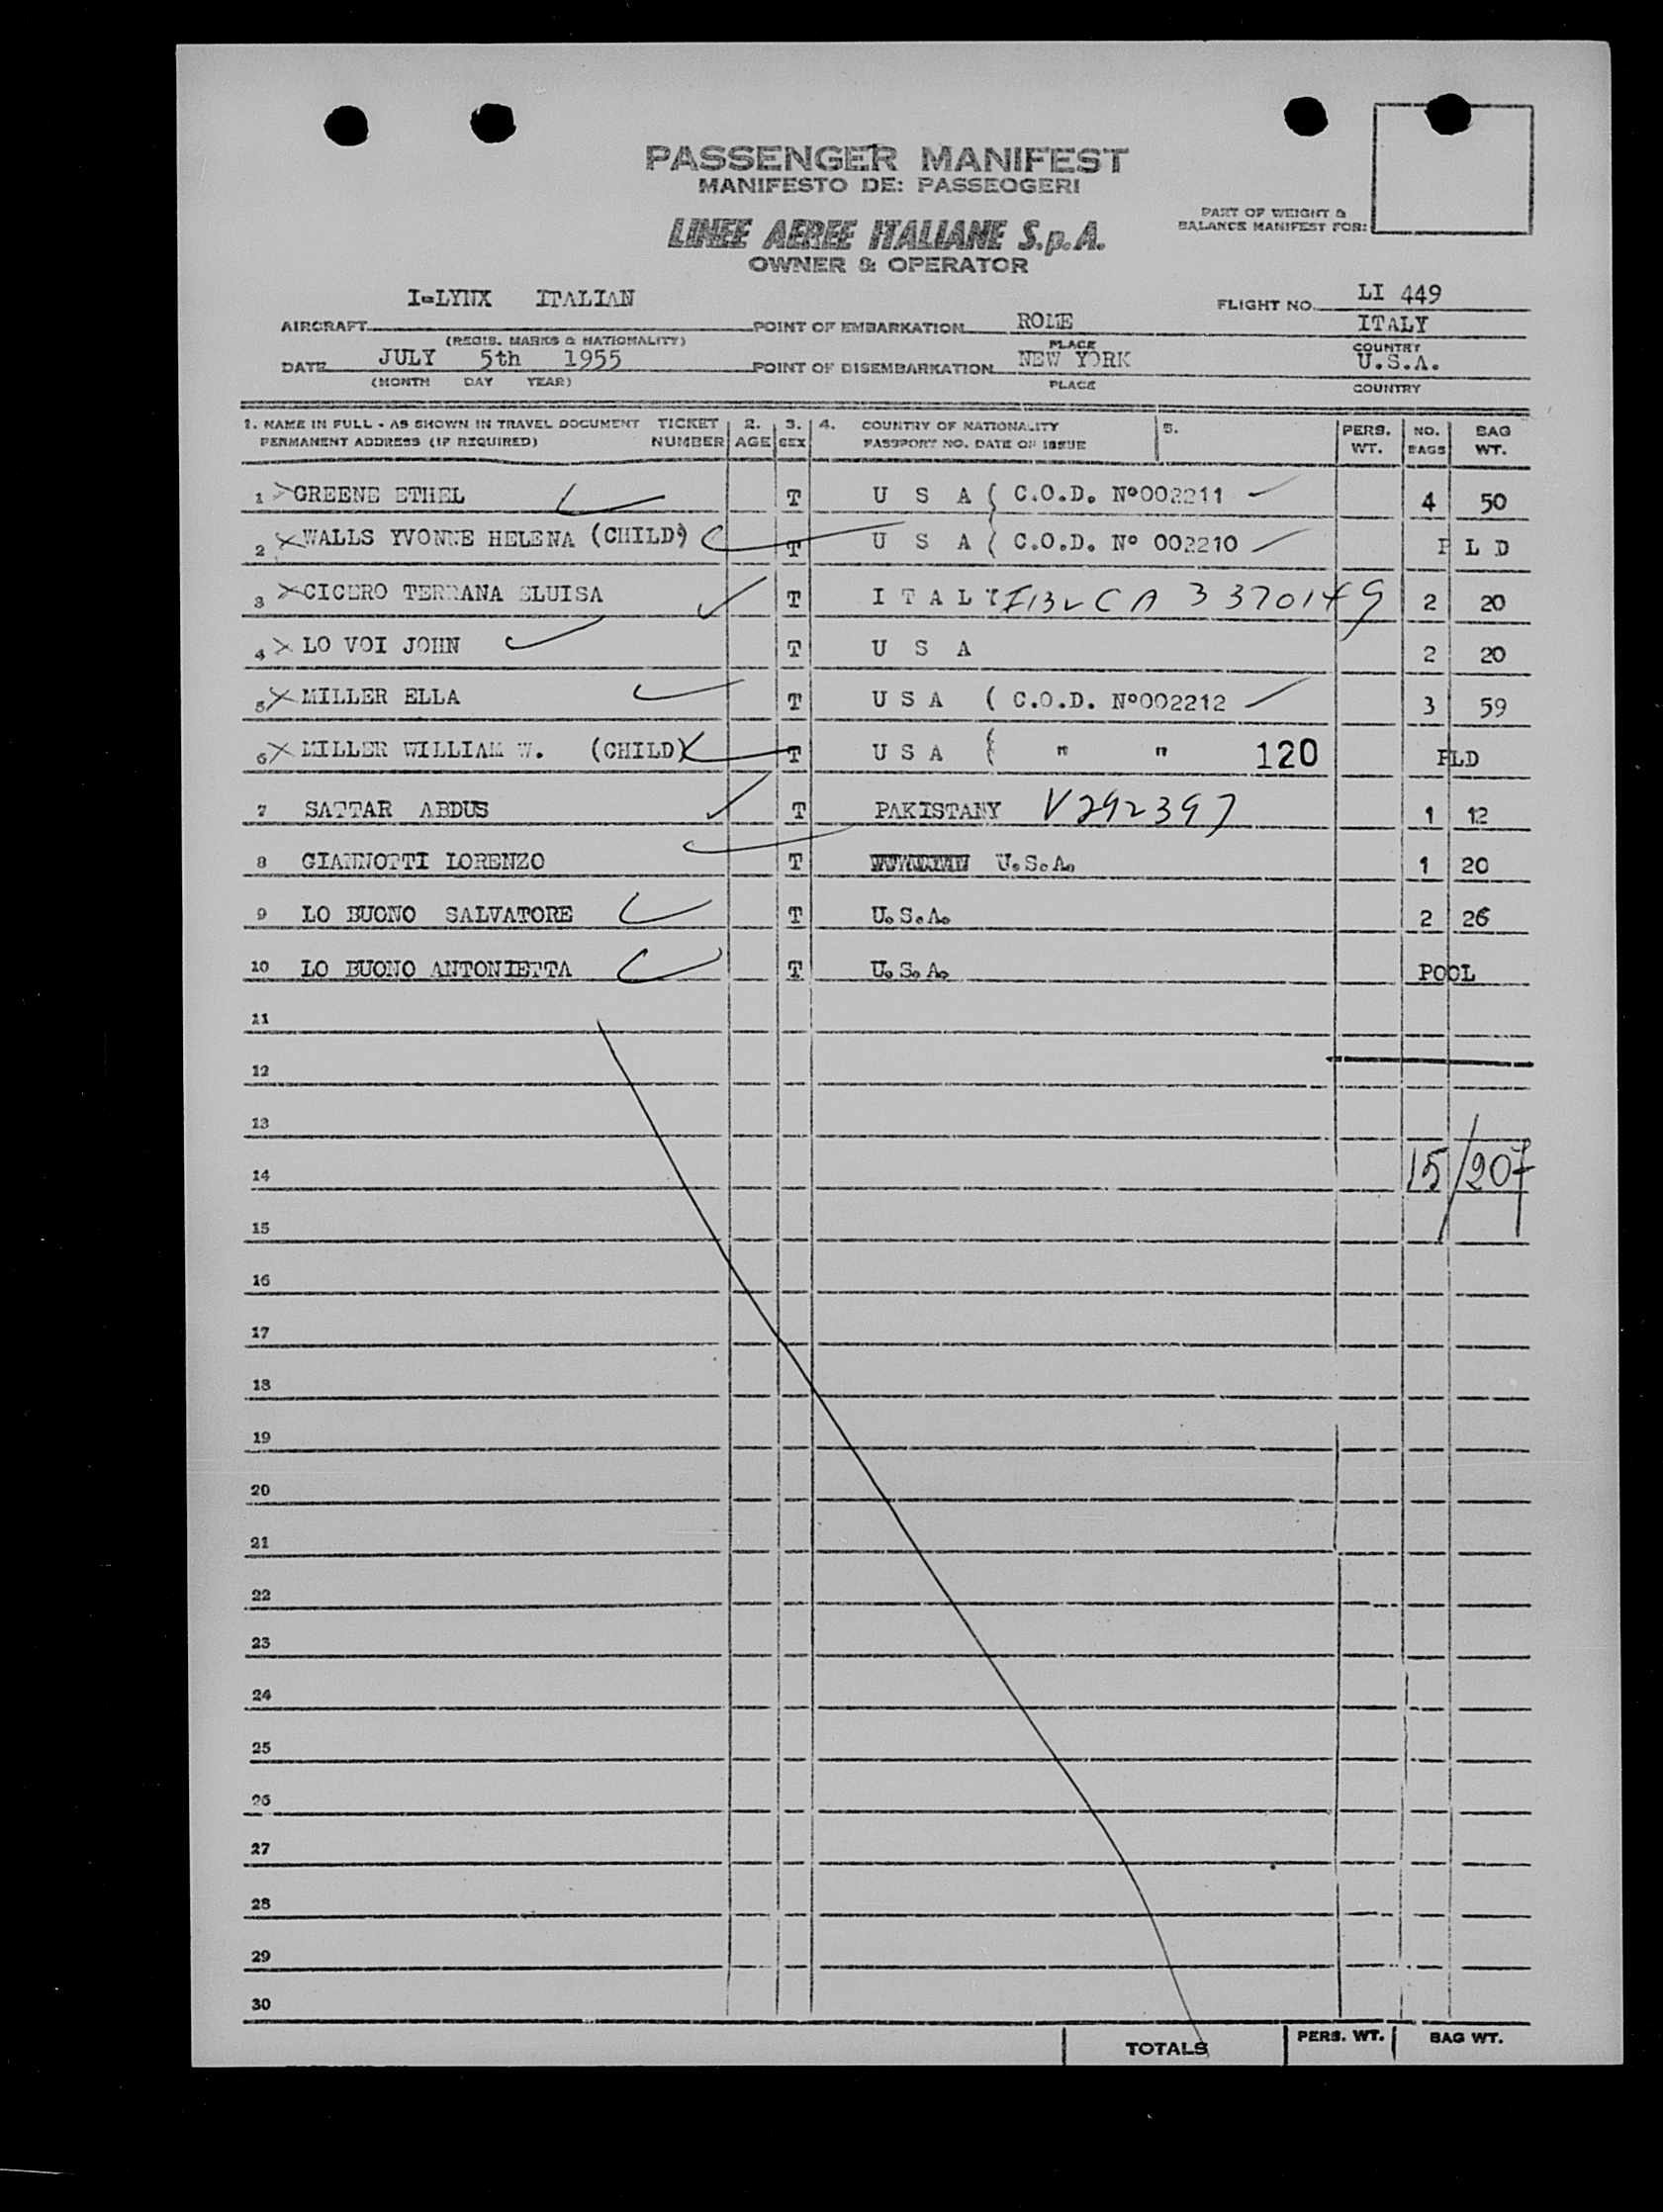 PASSENGER MANIFEST
MANIFESTO DE: PASSEOGERI
PART OF WEIGHT &
BALANCE MANIFEST FOR:
LINEE AEREE ITALIANE S.p.A.
OWNER & OPERATOR
I-LYNX ITALIAN
FLIGHT NO. LI 449
AIRCRAFT POINT OF EMBARKATION ROME ITALY
(REGIS. MARKS & NATIONALITY) PLACE COUNTRY
DATE JULY 5th 1955 POINT OF DISEMBARKATION NEW YORK U.S.A.
(MONTH DAY YEAR) PLACE COUNTRY
1. NAME IN FULL - AS SHOWN IN TRAVEL DOCUMENT TICKET 2. 3. 4. COUNTRY OF NATIONALITY 5. PERS. NO. BAG
PERMANENT ADDRESS (IF REQUIRED) NUMBER AGE SEX PASSPORT NO. DATE OF ISSUE WT. BAGS WT.
1 GREENE ETHEL T U S A ( C.O.D. Nº002211 4 50
2 WALLS YVONNE HELENA (CHILD) T U S A ( C.O.D. Nº 002210 P L D
3 CICERO TERRANA ELUISA T I T A L Y 3370149 2 20
4 LO VOI JOHN T U S A 2 20
5 MILLER ELLA T U S A ( C.O.D. Nº002212 3 59
6 MILLER WILLIAM W. (CHILD) T U S A ( " " 120 PLD
7 SATTAR ABDUS T PAKISTANY V292397 1 12
8 GIANNOTTI LORENZO T U.S.A. 1 20
9 LO BUONO SALVATORE T U.S.A. 2 26
10 LO BUONO ANTONIETTA T U.S.A. POOL
11
12
13
14 15/207
15
16
17
18
19
20
21
22
23
24
25
26
27
28
29
30
TOTALS PERS. WT. BAG WT.